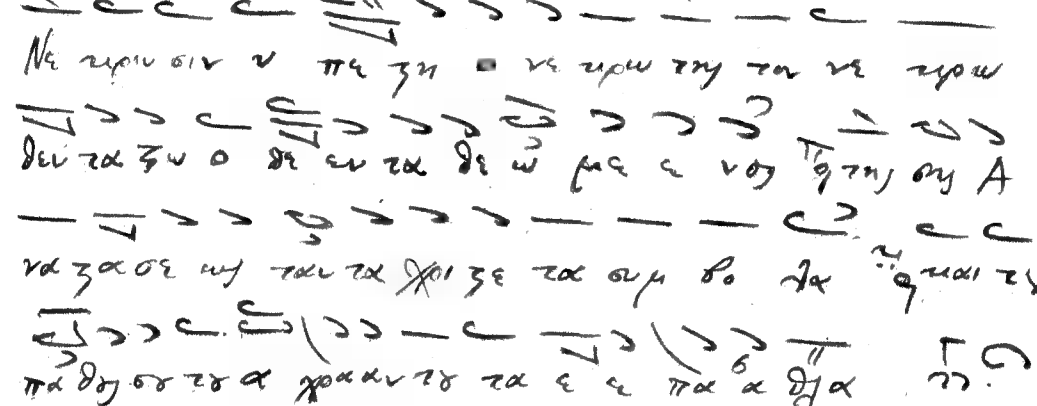 Νε κρω σιν υ πε ϛη νε κρω της των νε κρω
θεν τα ζω ο θε εν τα θε ω με ε νος της σης Α
να ϛα σε ως ταυ τα Χρι ϛε τα συμ βο λα και τȣ
πα θȣς σȣ τȣ α χρα αν τȣ τα ε ε πα α θλα